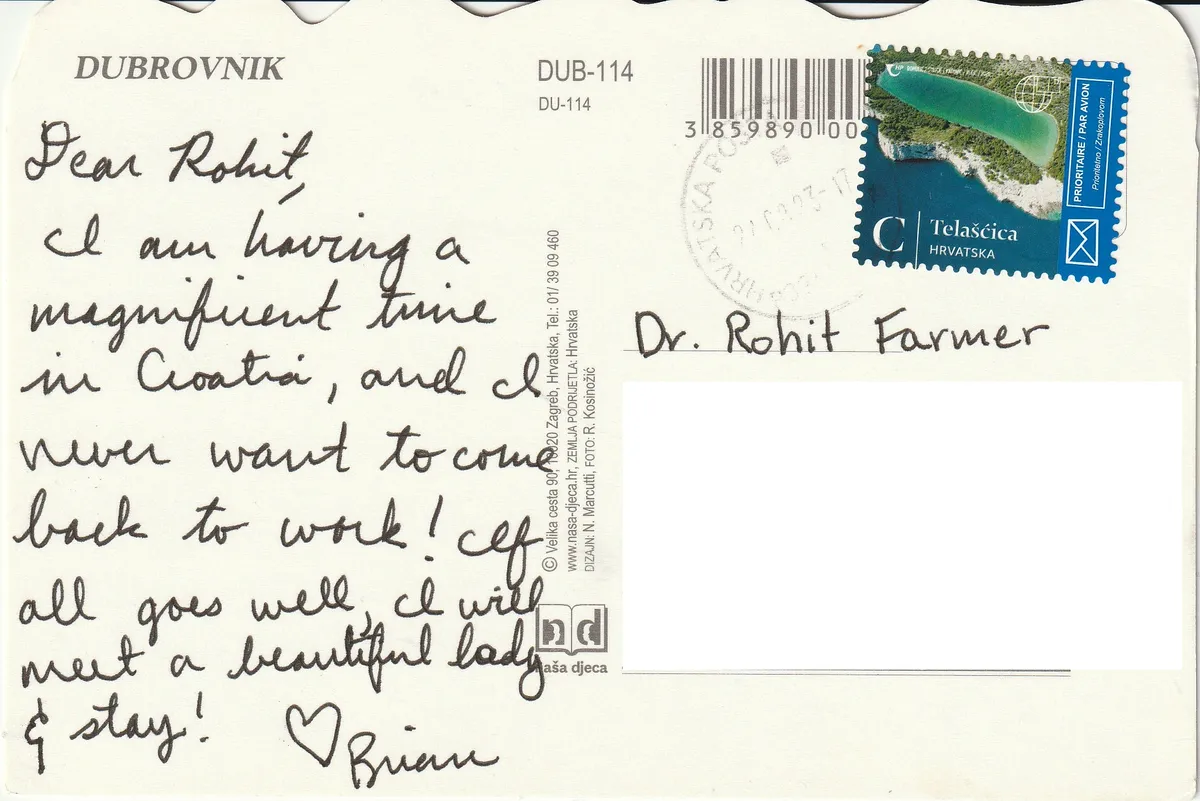 DUBROVNIK
Dear Rohit,
I am having a
magnificent time
in Croatia, and I
never want to come
back to work! If
all goes well, I will
meet a beautiful lady
& stay!
♡ Brian
DUB-114
DU-114
© Velika cesta 90, 10020 Zagreb, Hrvatska, Tel.: 01/ 39 09 460
www.nasa-djeca.hr, ZEMLJA PODRIJETLA: Hrvatska
DIZAJN: N. Marcutti, FOTO: R. Kosinožić
naša djeca
3 859890 00
HRVATSKA
C
Telašćica
HRVATSKA
PRIORITAIRE / PAR AVION
Prioritetno / Zrakoplovom
Dr. Rohit Farmer